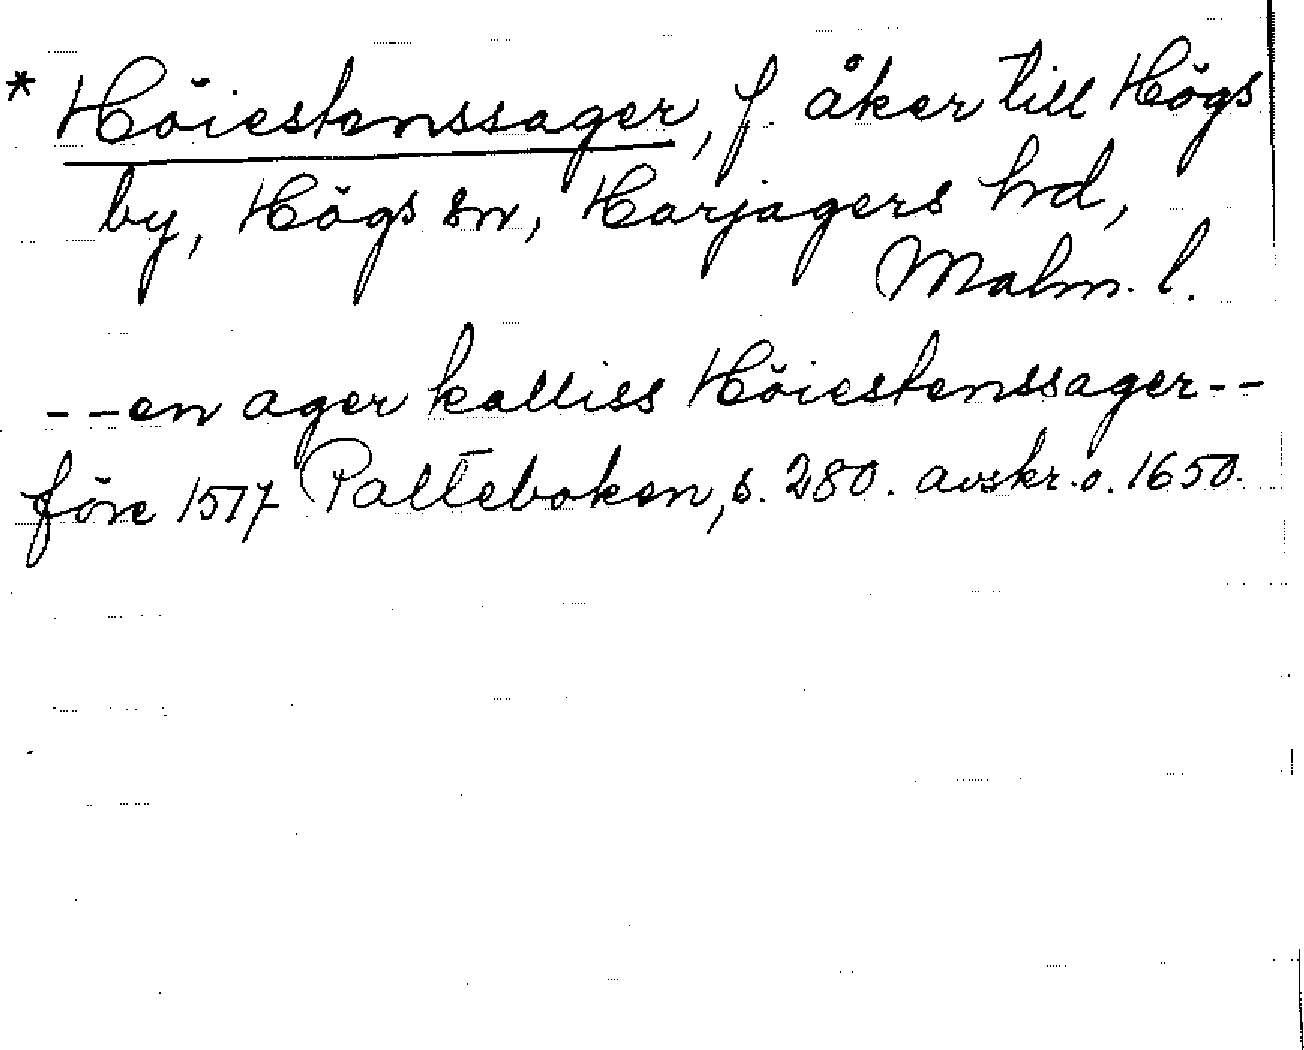 * Höiestenssager, f. åker till Högs
by, Högs sn, Harjagers hd,
Malm. l.
- - en ager kalliss Höiestenssager - -
före 1517 Palteboken, s. 280. avskr. o. 1650.